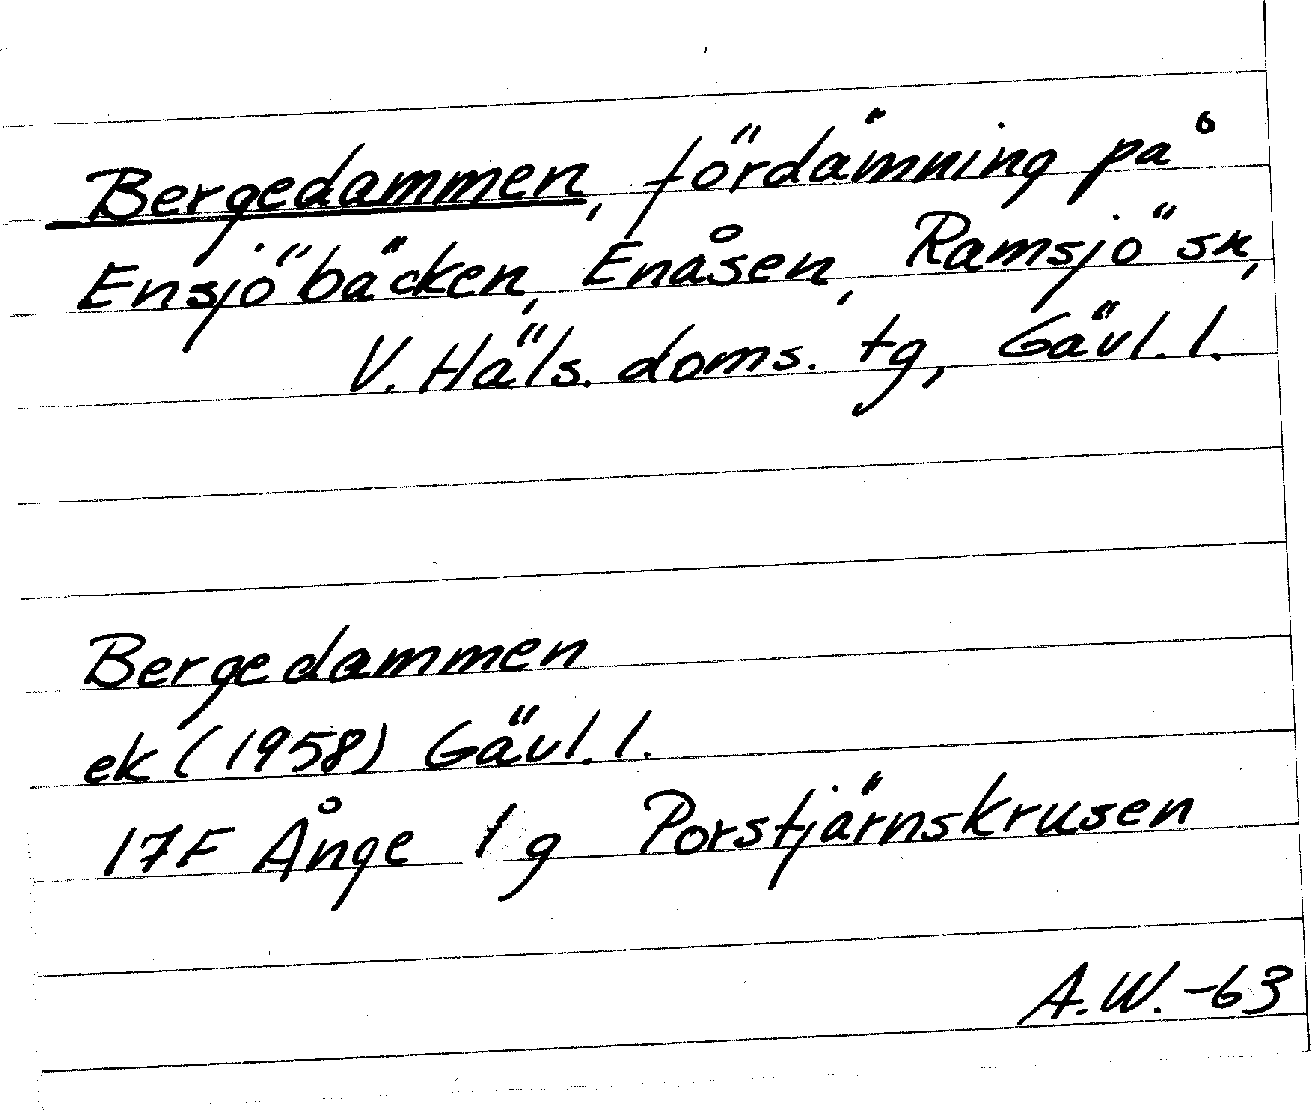 Bergedammen, fördämning på
Ensjöbäcken, Enåsen, Ramsjö sn,
V. Häls. doms. tg, Gävl. l.
Bergedammen
ek (1958) Gävl. l.
17F Ånge 1 g Porstjärnskrusen
A.W. -63